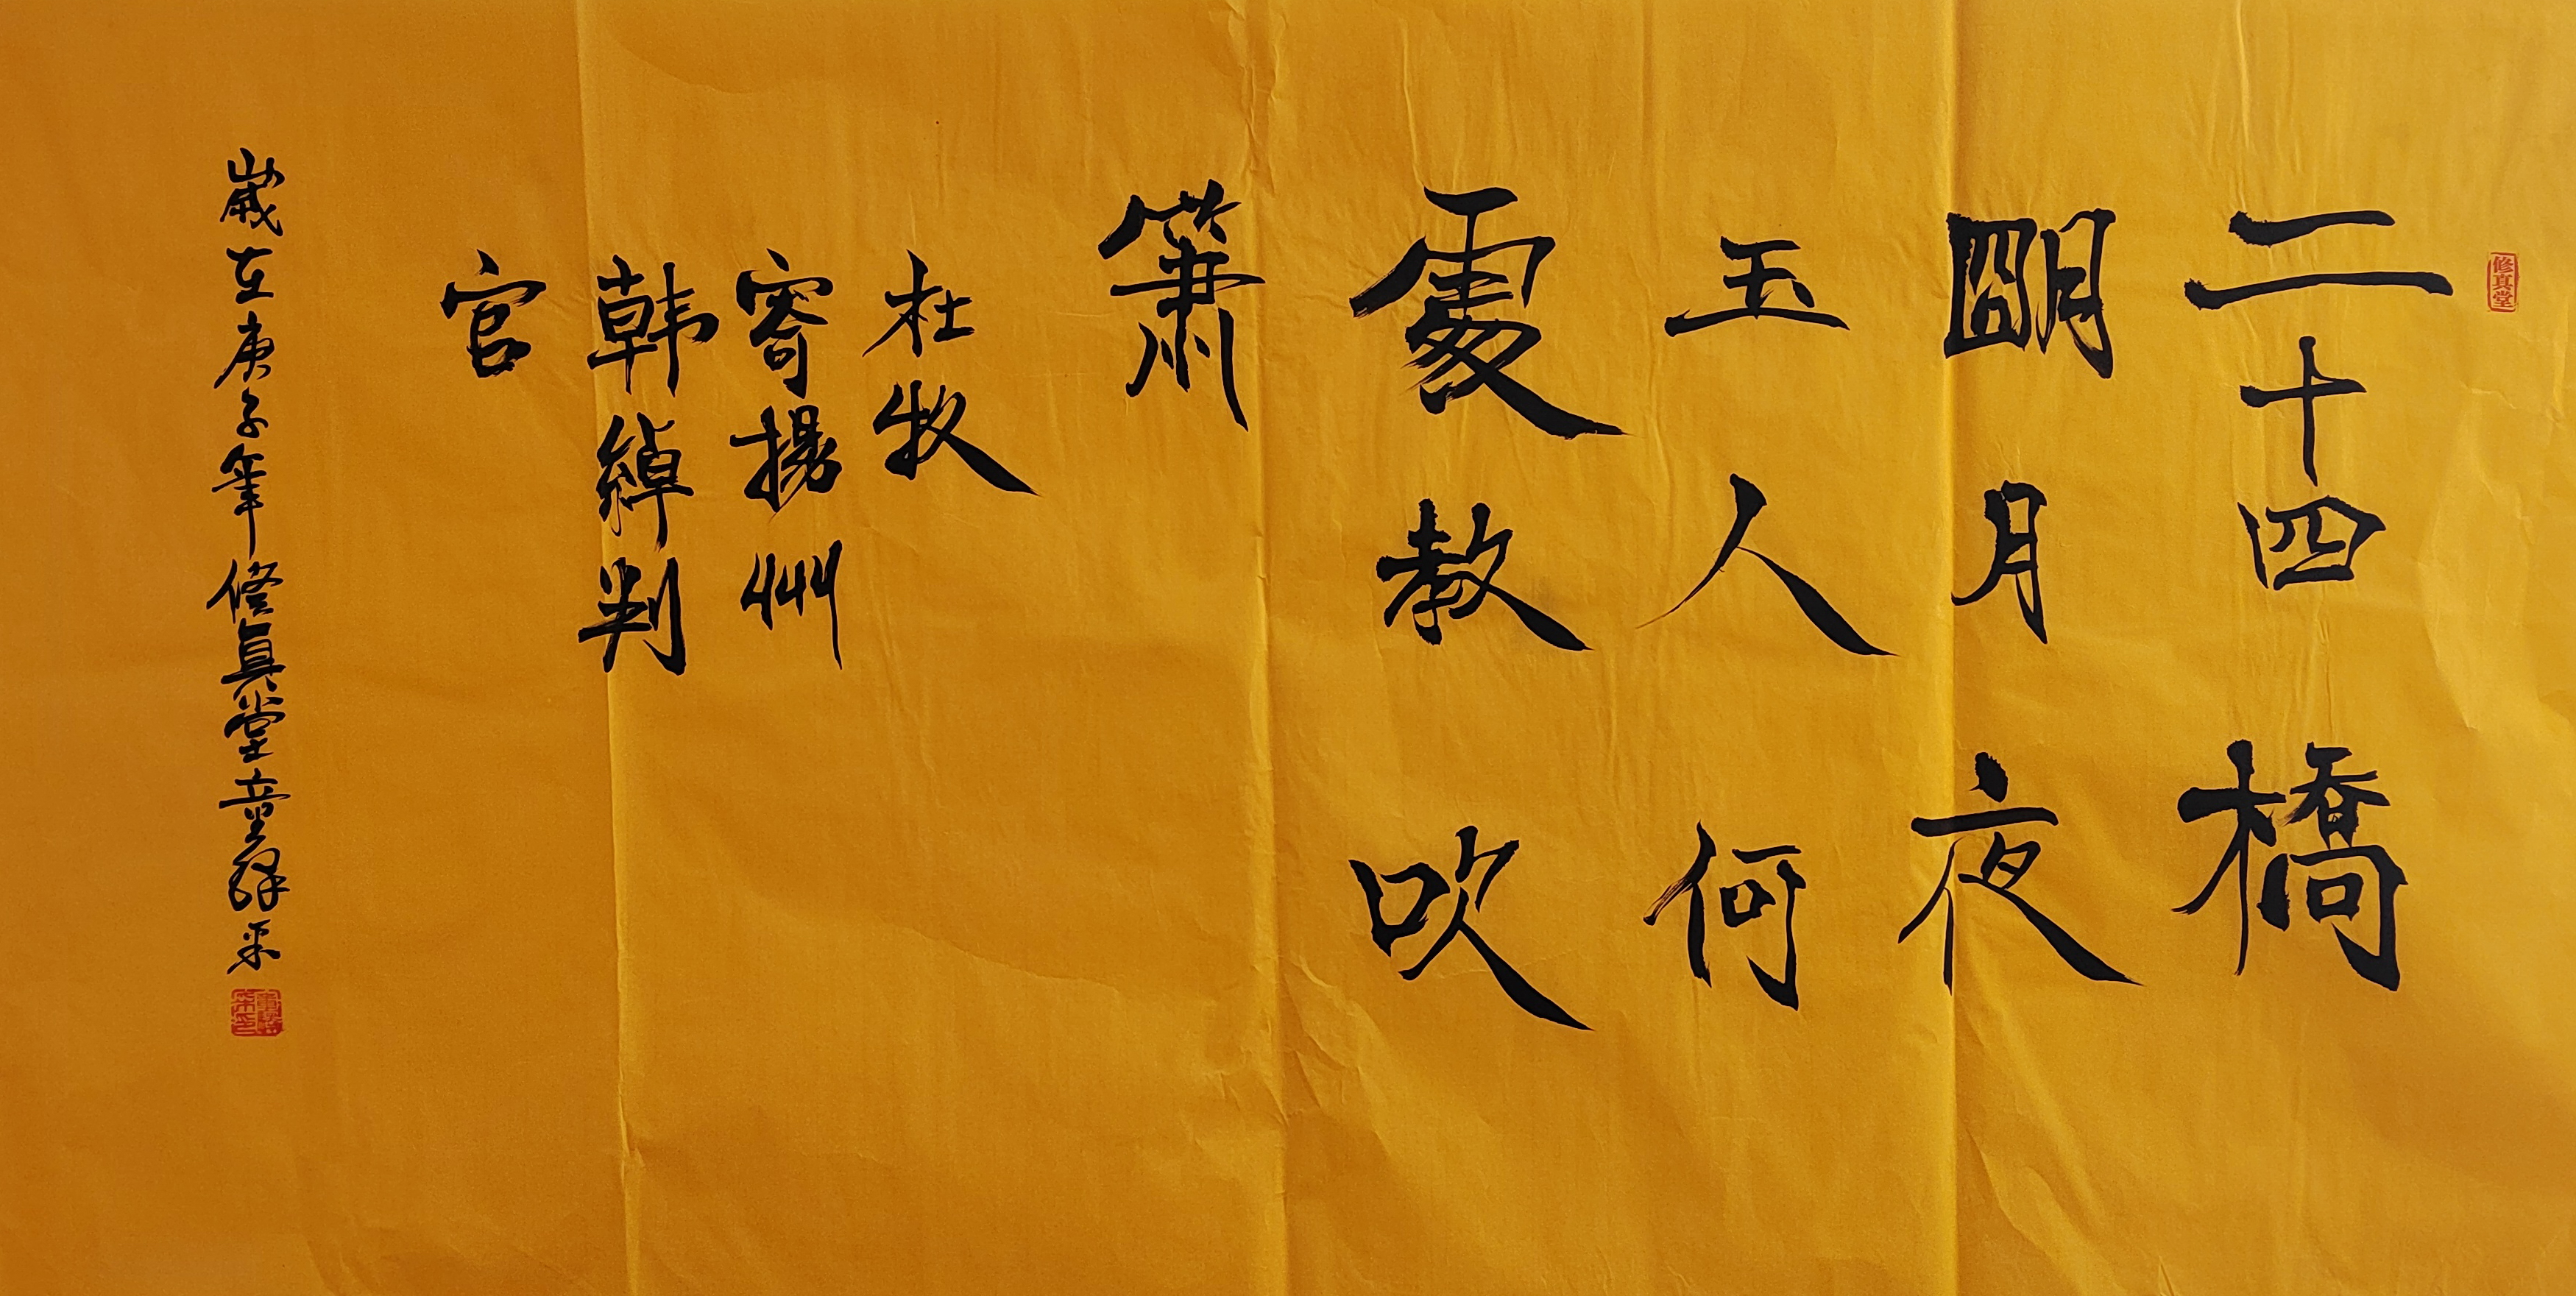 修真堂
二十四橋
朙月夜
玉人何
處教吹
簫
杜牧
寄揚州
韩綽判
官
歲在庚子年修真堂童辉采